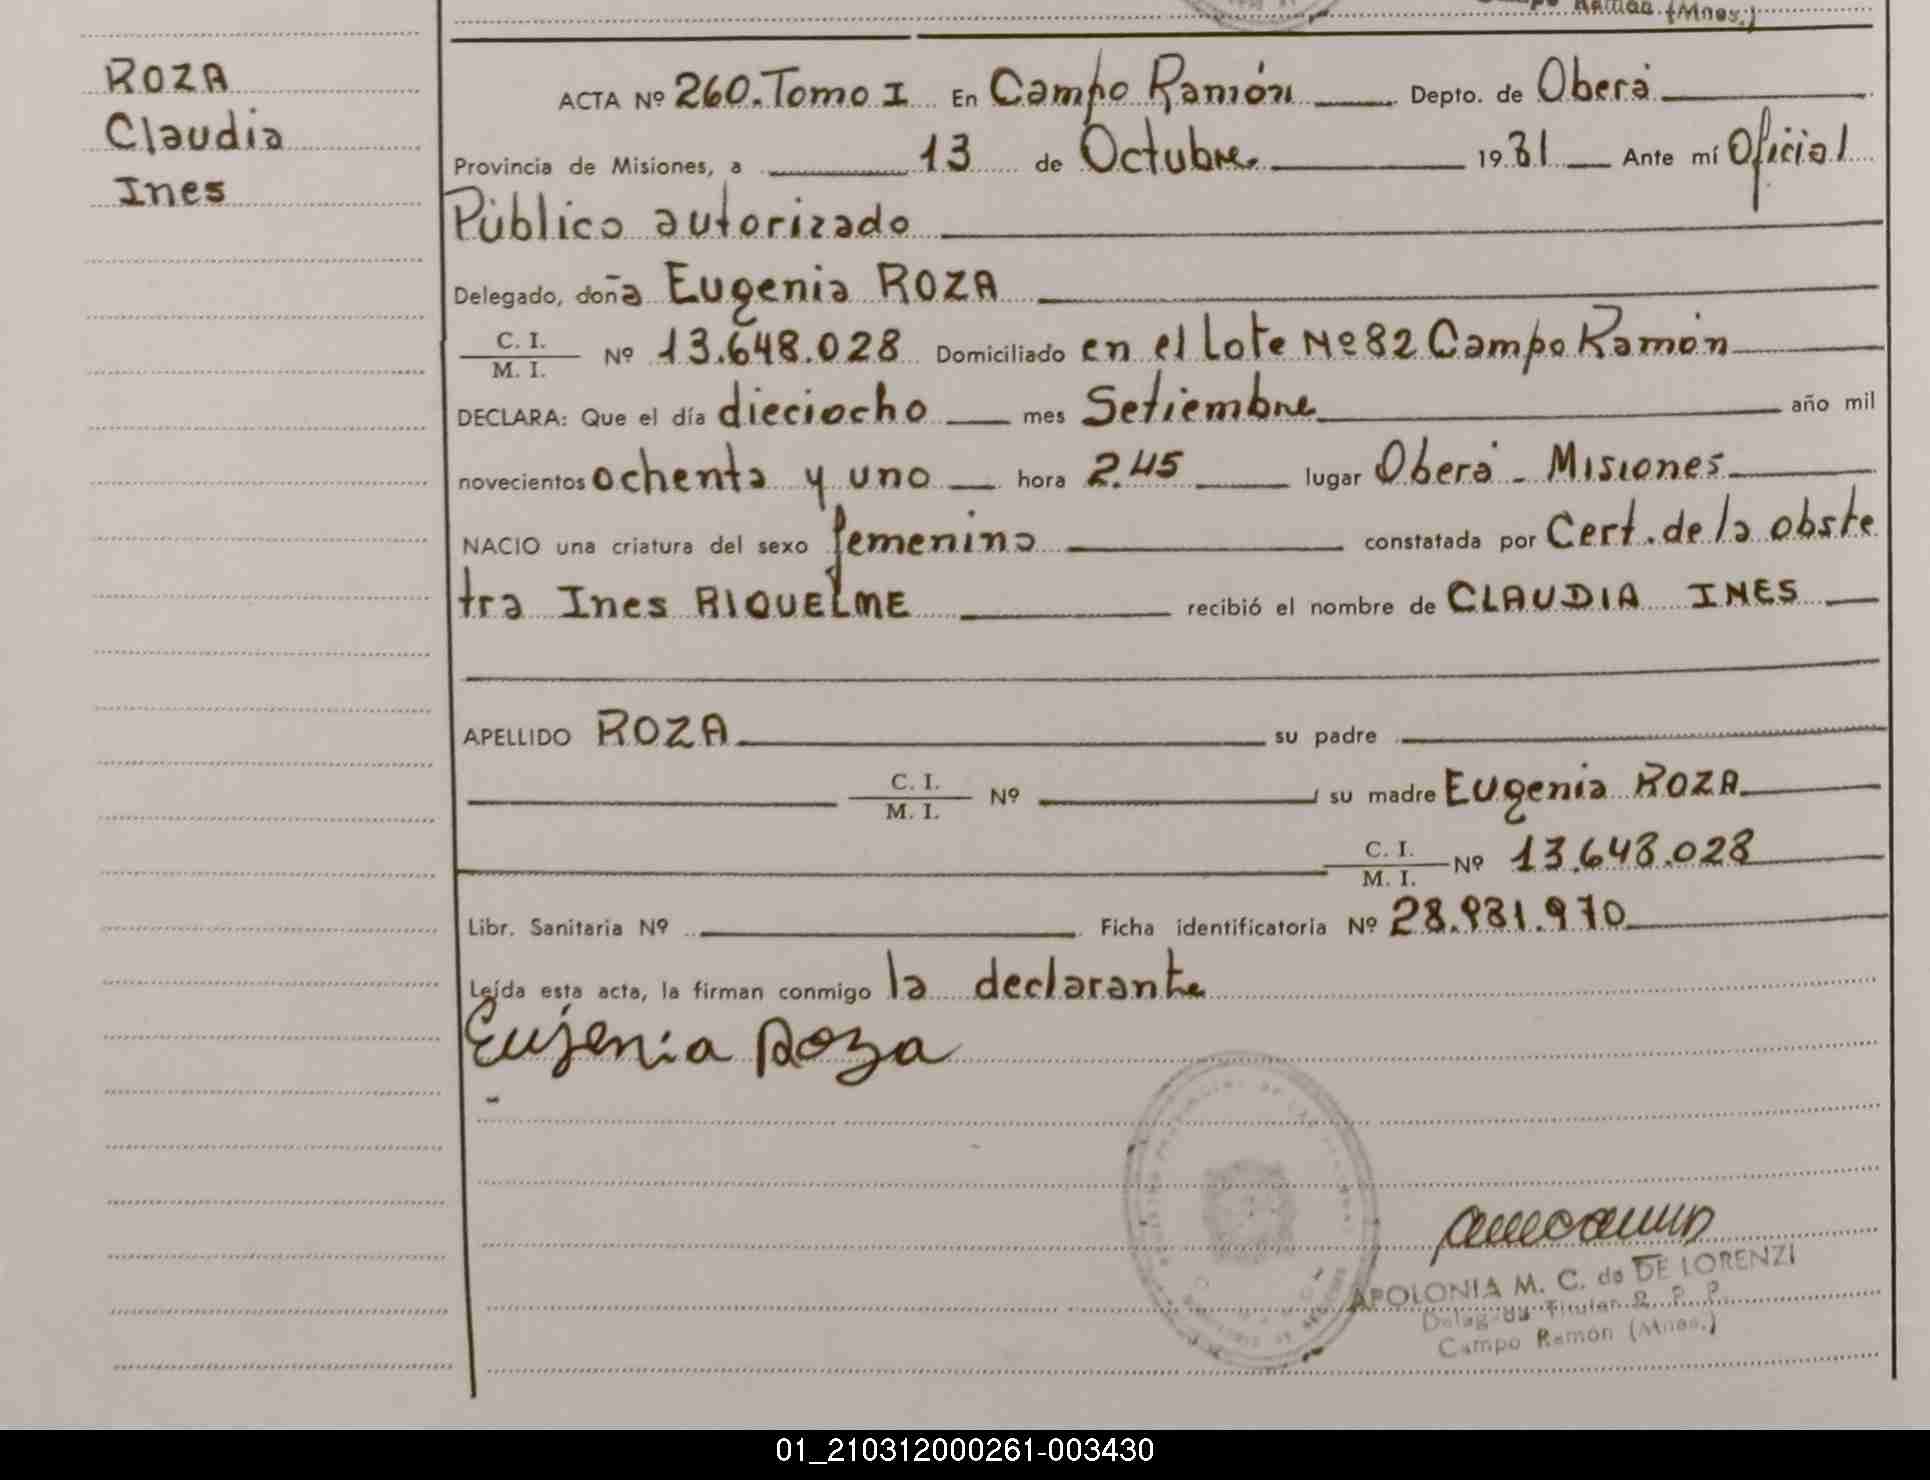 Ramón (Mnes.)
ROZA
Claudia
Ines
ACTA Nº 260. Tomo I En Campo Ramón Depto. de Oberá
Provincia de Misiones, a 13 de Octubre 1981 Ante mí Oficial
Público autorizado
Delegado, doña Eugenia ROZA
C. I.
M. I. Nº 13.648.028 Domiciliado en el Lote Nº 82 Campo Ramón
DECLARA: Que el día dieciocho mes Setiembre año mil
novecientos ochenta y uno hora 2.45 lugar Oberá - Misiones
NACIO una criatura del sexo femenino constatada por Cert. de la obste
tra Ines RIQUELME recibió el nombre de CLAUDIA INES
APELLIDO ROZA su padre
C. I.
M. I. Nº su madre Eugenia ROZA
C. I.
M. I. Nº 13.648.028
Libr. Sanitaria Nº Ficha identificatoria Nº 28.981.970
Leída esta acta, la firman conmigo la declarante
Eujenia Roza
APOLONIA M. C. de DE LORENZI
Delegada Titular R. P. P.
Campo Ramón (Mnes.)
01_210312000261-003430